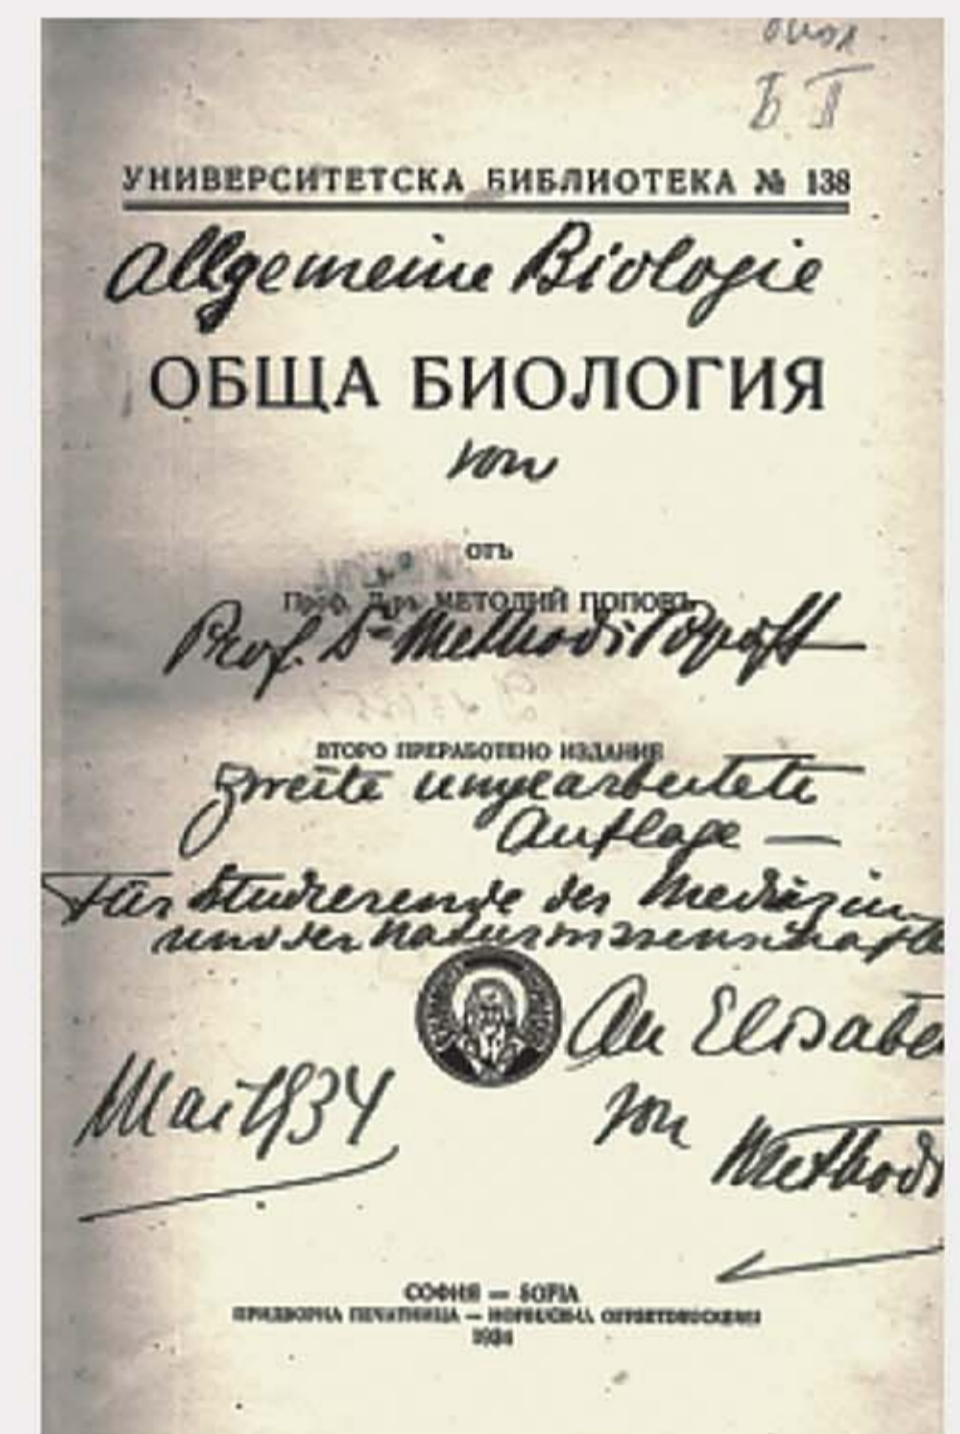 Б II
УНИВЕРСИТЕТСКА БИБЛИОТЕКА № 138
Allgemeine Biologie
ОБЩА БИОЛОГИЯ
von
отъ
Проф. Д-ръ МЕТОДИЙ ПОПОВЪ
Prof. Dr Methodi Popoff
ВТОРО ПРЕРАБОТЕНО ИЗДАНИЕ
Zweite umgearbeitete
Auflage —
Für Studierende der Medizin
und der Naturwissenschafte
An Elisabe
von
Methodi
Mai 1934
СОФИЯ — SOFIA
ПРИДВОРНА ПЕЧАТНИЦА —